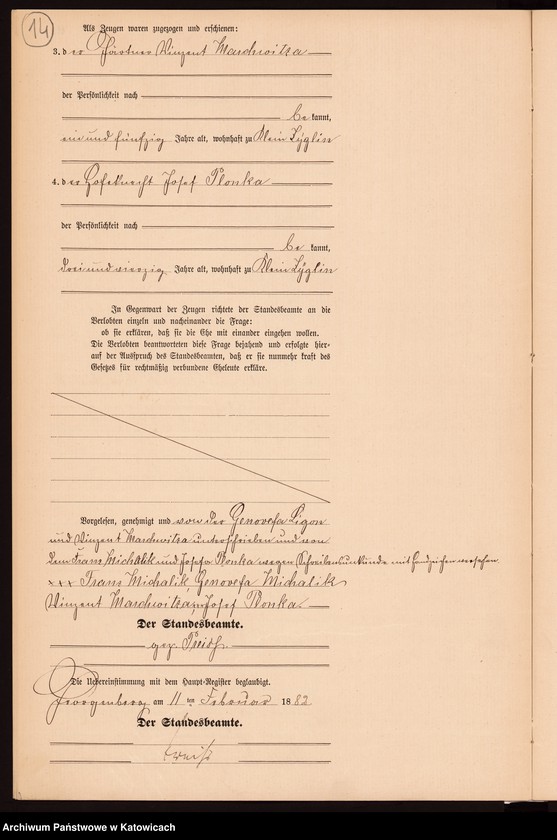 14
Als Zeugen waren zugezogen und erschienen:
3. der Gärtner Vinzent Marchwitza
der Persönlichkeit nach
bekannt,
ein und fünfzig Jahre alt, wohnhaft zu Klein Zyglin
4. der Hofeknecht Josef Plonka
der Persönlichkeit nach
bekannt,
dreiundvierzig Jahre alt, wohnhaft zu Klein Zyglin
In Gegenwart der Zeugen richtete der Standesbeamte an die
Verlobten einzeln und nacheinander die Frage:
ob sie erklären, daß sie die Ehe mit einander eingehen wollen.
Die Verlobten beantworteten diese Frage bejahend und erfolgte hier-
auf der Ausspruch des Standesbeamten, daß er sie nunmehr kraft des
Gesetzes für rechtmäßig verbundene Eheleute erkläre.
Vorgelesen, genehmigt und von der Genovefa Ligon
und Vinzent Marchwitza unterschrieben und von
dem Franz Michalik und Josef Plonka wegen Schreibensunkunde mit Handzeichen versehen
+++ Franz Michalik, Genovefa Michalik
Vinzent Marchwitza, +++ Josef Plonka.
Der Standesbeamte.
gez.
Die Uebereinstimmung mit dem Haupt-Register beglaubigt.
Georgenberg am 11ten Februar 1882
Der Standesbeamte.
Archiwum Państwowe w Katowicach